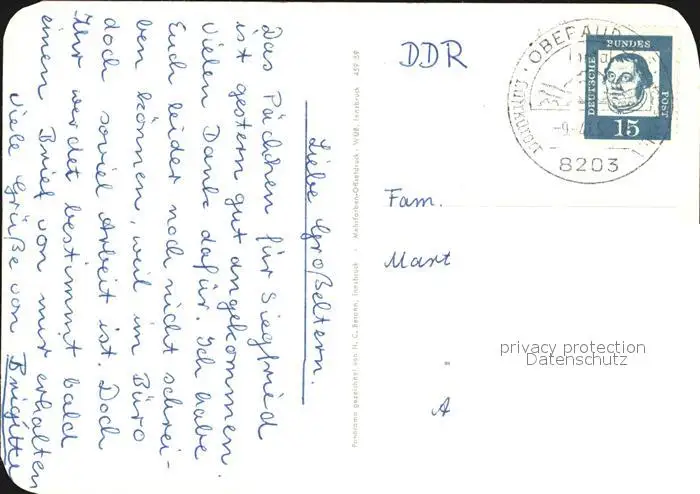 Liebe Großeltern.
Das Päckchen für Siegfried
ist gestern gut angekommen.
Vielen Dank dafür. Ich habe
Euch leider noch nicht schrei-
ben können, weil im Büro
doch soviel Arbeit ist. Doch
Ihr werdet bestimmt bald
einen Brief von mir erhalten
Viele Grüße von Brigitte
Panorama gezeichnet von H. C. Berann, Innsbruck · Mehrfarben-Offsetdruck · WUB, Innsbruck 459 59
DDR
OBERAUD
LUFTKURORT
8203
DEUTSCHE
BUNDES
POST
15
Fam.
Mart
A
privacy protection
Datenschutz